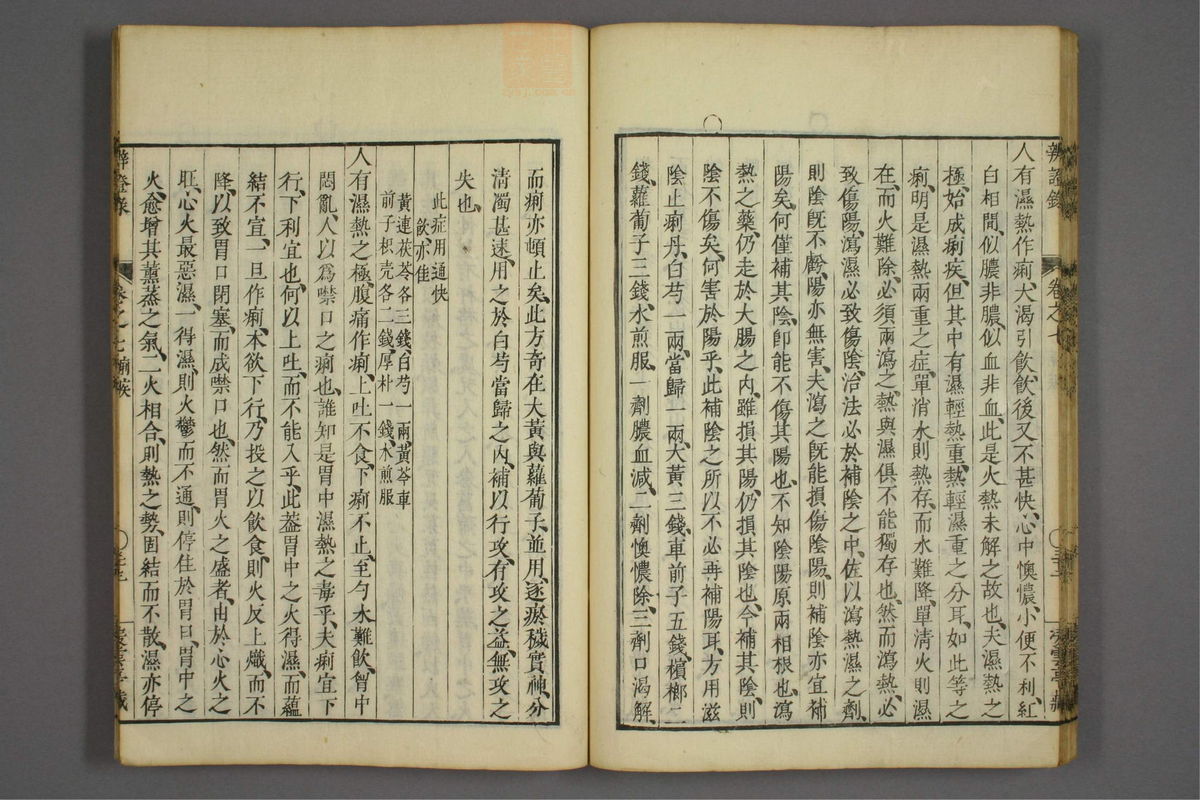 辨證錄 卷之七
人有濕熱作痢、大渴引飲、飲後又不甚快、心中懊憹、小便不利、紅
白相間、似膿非膿、似血非血、此是火熱未解之故也、夫濕熱之
極、始成痢疾、但其中有濕輕熱重、熱輕濕重之分耳、如此等之
痢、明是濕熱兩重之症、單消水則熱存、而水難降、單清火則濕
在、而火難除、必須兩瀉之、熱與濕俱不能獨存也、然而瀉熱、必
致傷陽、瀉濕必致傷陰、治法必於補陰之中、佐以瀉熱濕之劑、
則陰旣不虧、陽亦無害、夫瀉之旣能損傷陰陽、則補陰亦宜補
陽矣、何僅補其陰、卽能不傷其陽也、不知陰陽原兩相根也、瀉
熱之藥、仍走於大腸之內、雖損其陽、仍損其陰也、今補其陰、則
陰不傷矣、何害於陽乎、此補陰之所以不必再補陽耳、方用滋
陰止痢丹、白芍一兩、當歸一兩、大黃三錢、車前子五錢、檳榔二
錢、蘿葡子三錢、水煎服、一劑膿血減、二劑懊憹除、三劑口渴解、
而痢亦頓止矣、此方奇在大黃與蘿葡子、並用、逐瘀穢實神、分
清濁甚速、用之於白芍當歸之內、補以行攻、有攻之益、無攻之
失也、
此症用通快
飲亦佳
黃連茯苓各三錢、白芍一兩、黃芩車
前子枳壳各二錢、厚朴一錢、水煎服
人有濕熱之極、腹痛作痢、上吐不食、下痢不止、至勺水難飲、胷中
悶亂、人以爲噤口之痢也、誰知是胃中濕熱之毒乎、夫痢宜下
行、下利宜也、何以上吐、而不能入乎、此葢胃中之火得濕、而蘊
結不宣、一旦作痢、本欲下行、乃投之以飲食、則火反上熾、而不
降、以致胃口閉塞、而成噤口也、然而胃火之盛者、由於心火之
旺、心火最惡濕、一得濕、則火鬱而不通、則停住於胃口、胃中之
火、愈增其薰蒸之氣、二火相合、則熱之勢、固結而不散、濕亦停
辨證錄 卷之七 痢疾